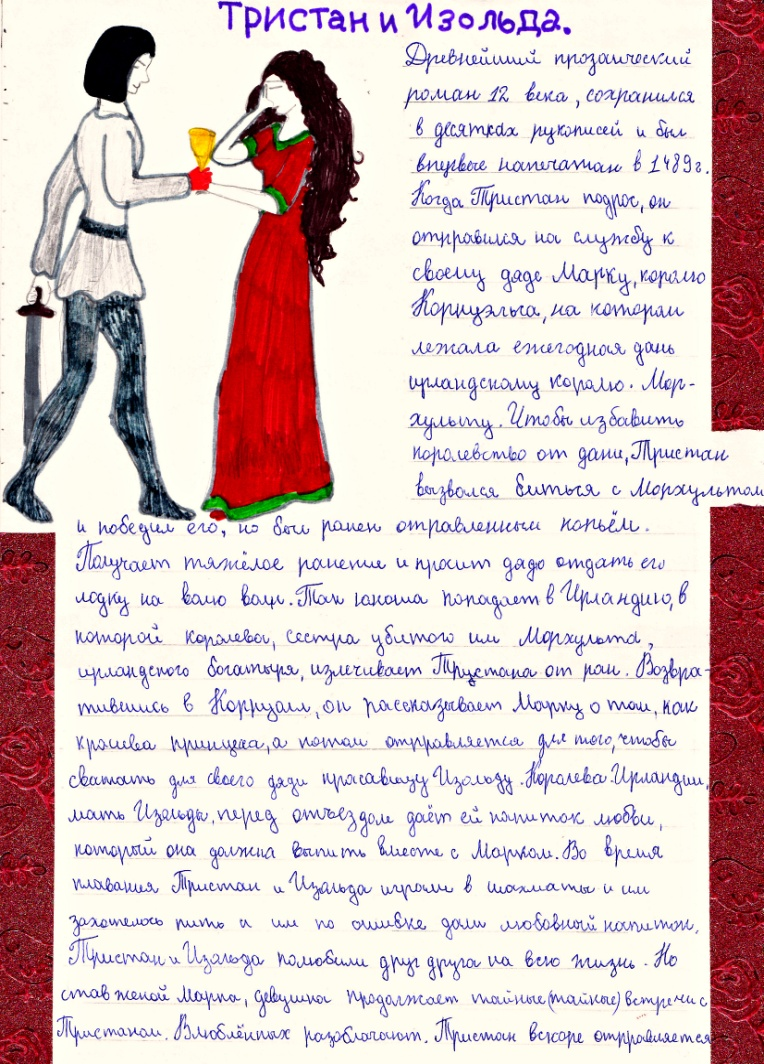 Тристан и Изольда.
Древнейший прозаический
роман 12 века, сохранился
в десятках рукописей и был
впервые напечатан в 1489г.
Когда Тристан подрос, он
отправился на службу к
своему дяде Марку, королю
Корнуэльса, на котором
лежала ежегодная дань
ирландскому королю. Мор-
хульту. Чтобы избавить
королевство от дани, Тристан
вызвался биться с Морхультом
и победил его, но был ранен отравленным копьём.
Получает тяжёлое ранение и просит дядю отдать его
лодку на волю волн. Так юноша попадает в Ирландию, в
которой королева, сестра убитого им Морхульта,
ирландского богатыря, излечивает Тристана от ран. Возвра-
тившись в Корнуэлл, он рассказывает Марку о том, как
красива принцесса, а потом отправляется для того, чтобы
сватать для своего дяди красавицу Изольду. Королева Ирландии,
мать Изольды, перед отъездом даёт ей напиток любви,
который она должна выпить вместе с Марком. Во время
плавания Тристан и Изольда играли в шахматы и им
захотелось пить и им по ошибке дали любовный напиток.
Тристан и Изольда полюбили друг друга на всю жизнь. Но
став женой Марка, девушка продолжает тайные (тайные) встречи с
Тристаном. Влюблённых разоблачают. Тристан вскоре отправляется